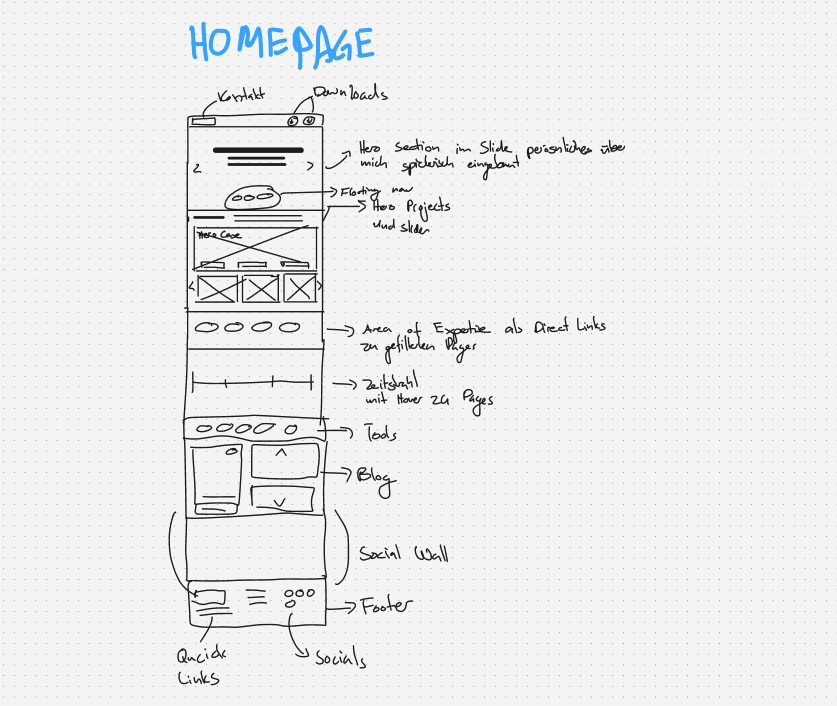 HOMEPAGE
Kontakt
Downloads
Hero section im Slide persönliches über
mich spielerisch eingebaut
Floating nav
Hero Projects
und Slider
Hero Case
Area of Expertise als Direct Links
zu gefilterten Pages
Zeitstrahl
mit Hover zu Pages
Tools
Blog
Social Wall
Footer
Qucick
Links
Socials